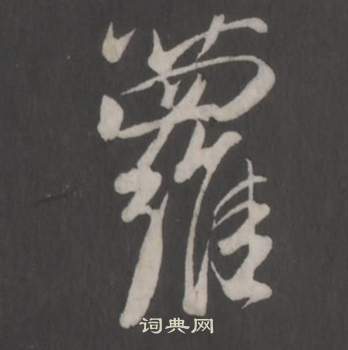 蘿
词典网